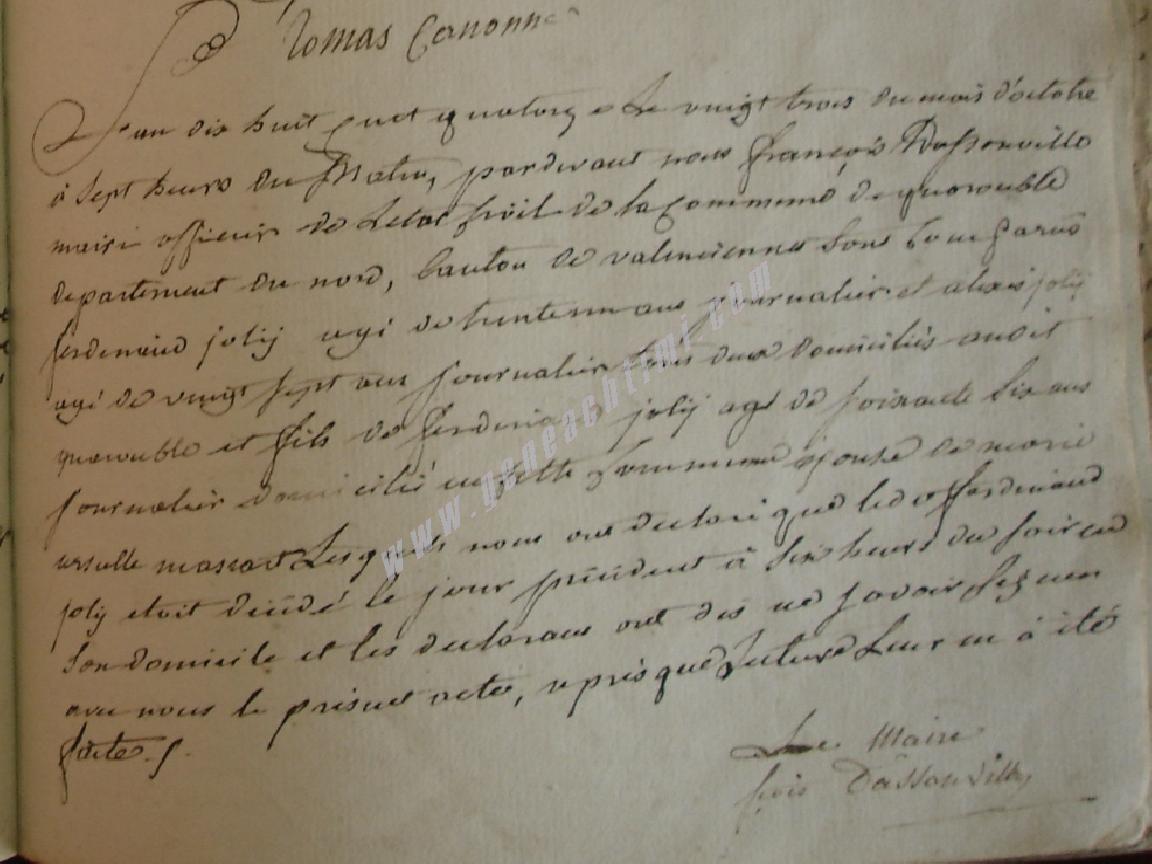 tomas Canonne
L'an dix huit Cent quatorze Le vingt trois du mois d'octobre
à Sept heurs du Matin, pardevant nous françois Dassonville
maire officier de Letat Civil de la Commune de quarouble
departement du nord, Canton de valencienne Sont Comparus
ferdenand jolij agé de trente un ans journalier et alexis jolij
agé de vingt sept ans journalier tous deux domiciliés audit
quarouble et fils de ferdinand jolij agé de soixante six ans
journalier domicilié en cette Commune épouse de marie
ursulle massart Lesquels nous ont declaré que ledit ferdinand
jolij etoit décédé le jour précédent à Six heurs du Soir en
Son domicile et les declarans ont dis ne savoir Signer
avec nous le present acte, apres que Lecture Leur en à été
faite
Le Maire
fçois Dassonville
www.geneachtimi.com